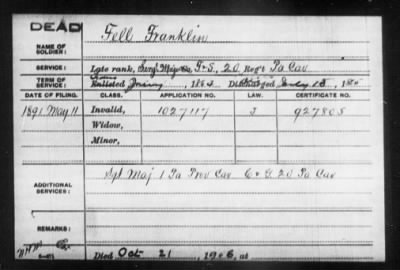 DEAD
Fell Franklin
NAME OF SOLDIER:
SERVICE: Late rank, Sergt Major F+S, 20 Regt Pa Cav
TERM OF SERVICE: Enlisted 1864 Discharged July 13, 186
DATE OF FILING. CLASS. APPLICATION NO. LAW. CERTIFICATE NO.
1891 May 11 Invalid, 1027117 J 927805
Widow,
Minor,
ADDITIONAL SERVICES: Sgt Maj 1 Pa Prov Cav & G 20 Pa Cav
REMARKS:
Died Oct 21, 1906, at
6-071